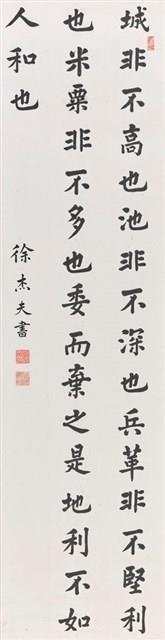 城非不高也池非不深也兵革非不堅利
也米粟非不多也委而棄之是地利不如
人和也
徐杰夫書